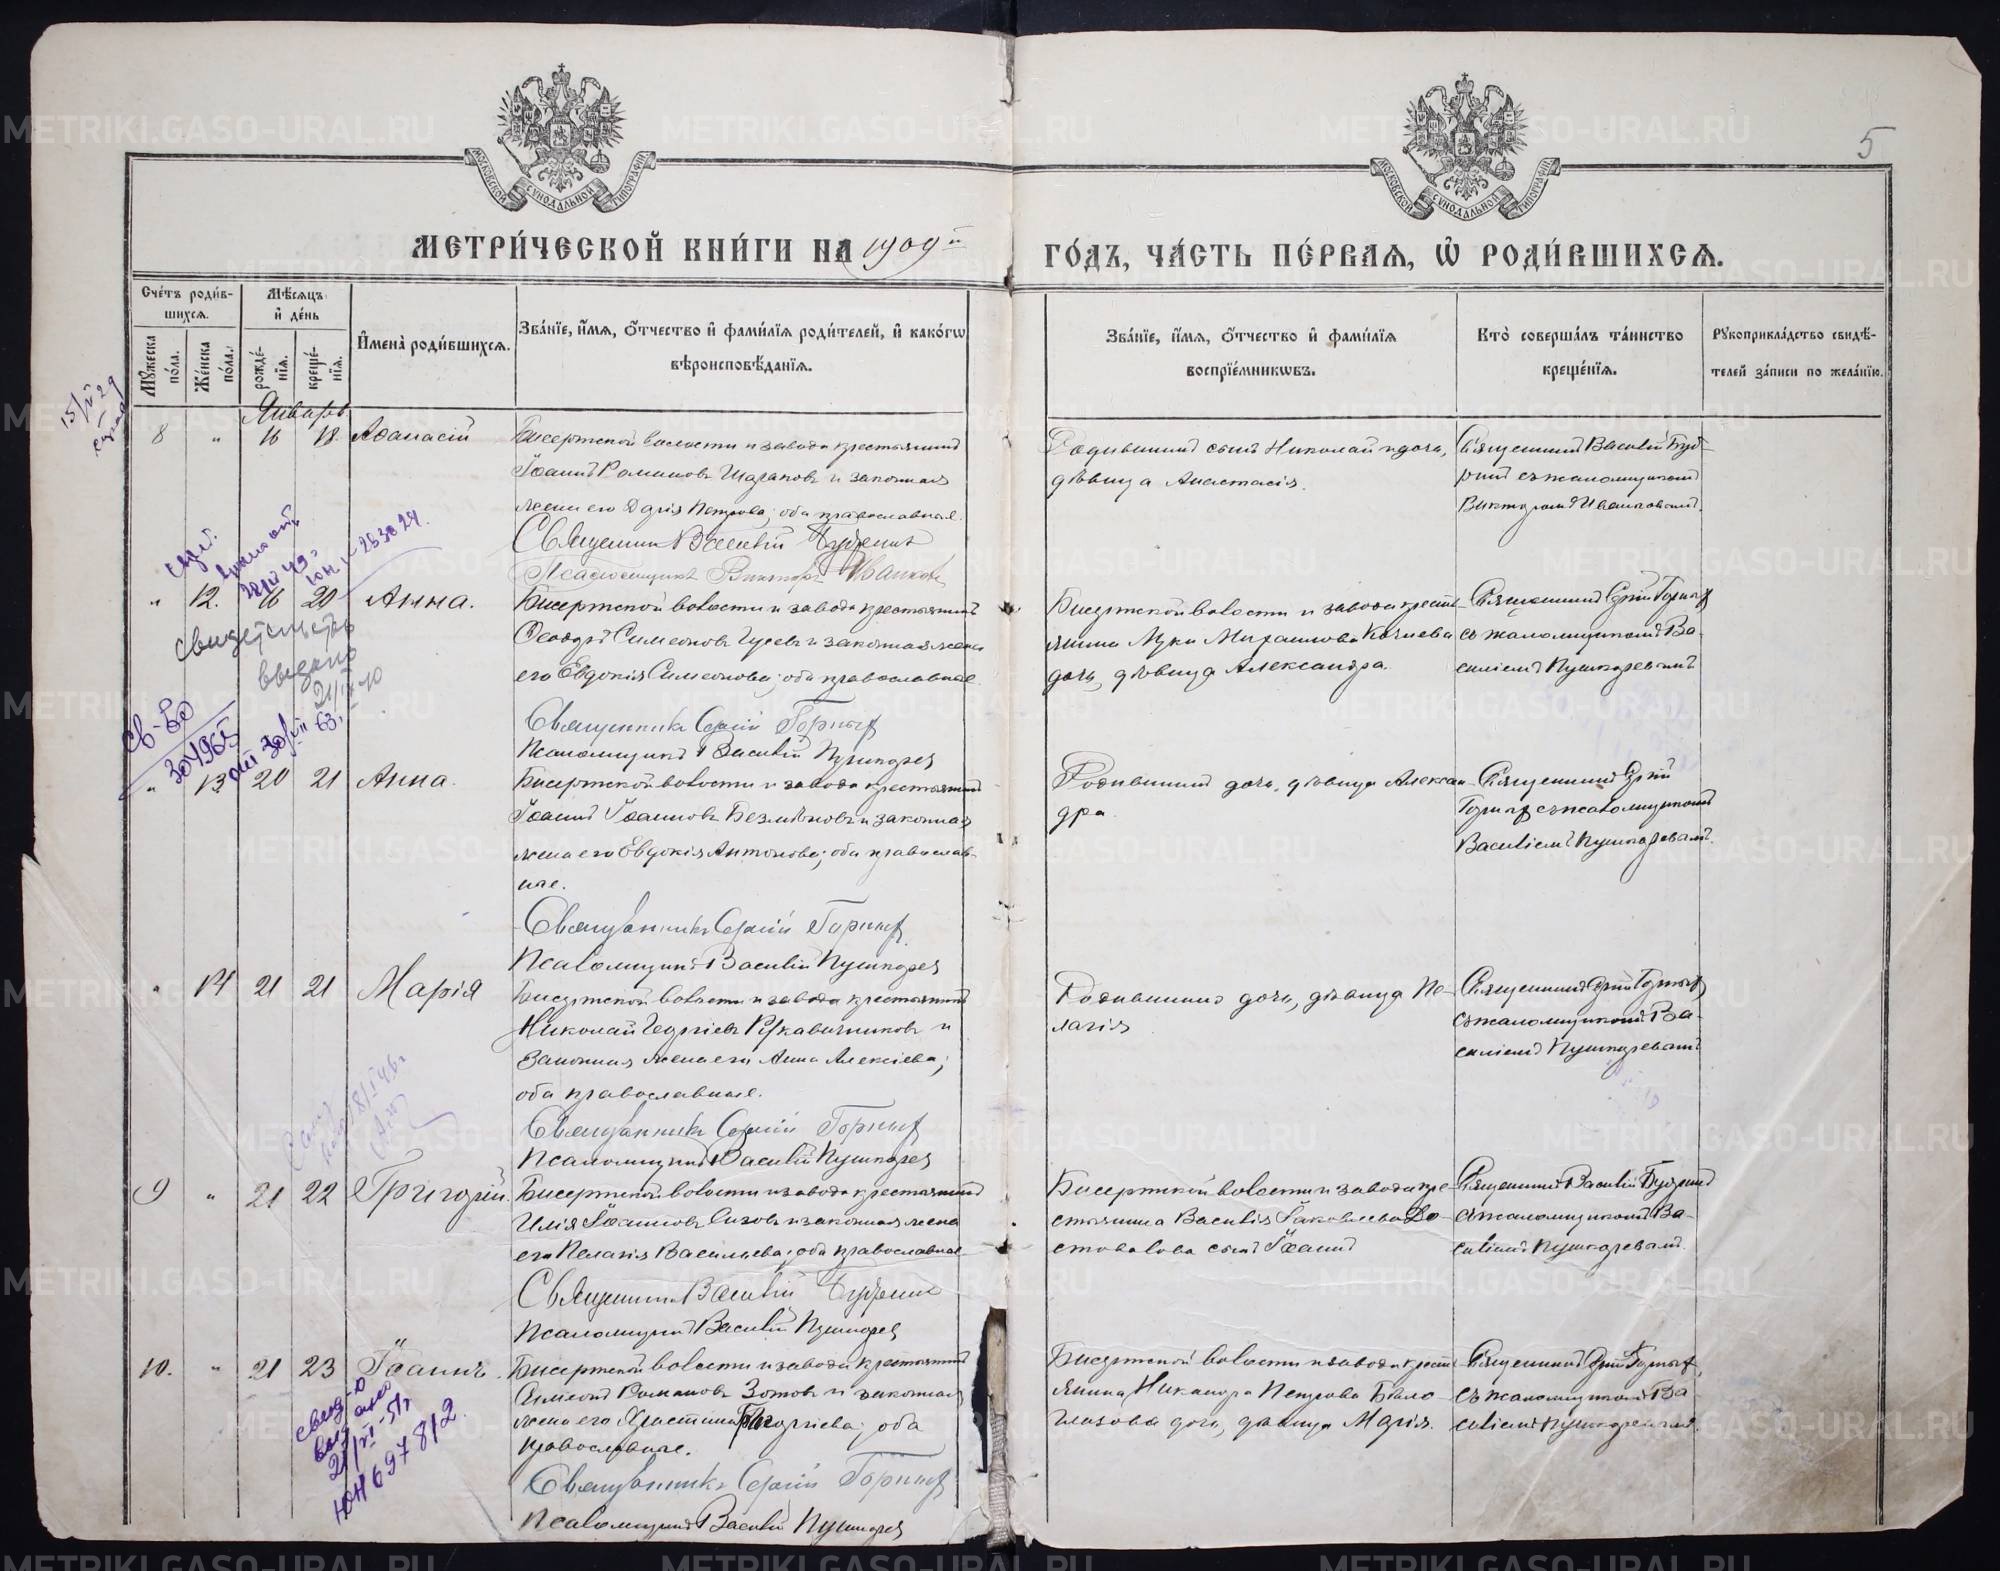 5
МОСКОВСКОЙ СѴНОДАЛЬНОЙ ТИПОГРАФІИ
МОСКОВСКОЙ СѴНОДАЛЬНОЙ ТИПОГРАФІИ
МЕТРИ́ЧЕСКОЙ КНИ́ГИ НА 1909й ГО́ДЪ, ЧА́СТЬ ПЕ́РВАѦ, Ѡ҆ РОДИ́ВШИХСѦ.
Сче́тъ роди́вшихсѧ.
Мѹ́жеска по́ла.
Же́нска по́ла.
Мѣ́сѧцъ и҆ де́нь
рожде́нїѧ.
креще́нїѧ.
И҆мена̀ роди́вшихсѧ.
Зва́нїе, и҆́мѧ, ѻ҆́тчество и҆ фами́лїѧ роди́телей, и҆ како́гѡ
вѣроисповѣ́данїѧ.
Зва́нїе, и҆́мѧ, ѻ҆́тчество и҆ фами́лїѧ
воспрїе́мникѡвъ.
Кто̀ соверша́лъ та́инство
креще́нїѧ.
Рѹкоприкла́дство свидѣ́-
телей за́писи по жела́нїю.
Январь
8 " 16 18 Аѳанасій
Бисертской волости и завода крестьянинъ
Іоаннъ Романовъ Шараповъ и законная
жена его Дарія Петрова; оба православные.
Священникъ Василій
Псаломщикъ Викторъ Ивановъ
Родившаго сынъ Николай и дочь,
дѣвица Анастасія.
Священникъ Василій
съ псаломщикомъ
Викторомъ Ивановымъ.
" 12. 16 20 Анна.
Бисертской волости и завода крестьянинъ
Ѳеодоръ Симеоновъ Гусевъ и законная жена
его Евдокія Симеонова; оба православные.
Священникъ Сергій Горныхъ
Псаломщикъ Василій Пушкаревъ
Бисертской волости и завода кресть-
янина Луки
дочь, дѣвица Александра.
Священникъ Сергій Горныхъ
съ псаломщикомъ Ва-
силіемъ Пушкаревымъ
свидетельство
выдано
" 13 20 21 Анна.
Бисертской волости и завода крестьянинъ
Іоаннъ Іоанновъ Безмѣновъ и законная
жена его Евдокія Антонова; оба православ-
ные.
Священникъ Сергій Горныхъ
Псаломщикъ Василій Пушкаревъ
Родившаго дочь, дѣвица Алексан-
дра
Священникъ Сергій
Горныхъ съ псаломщикомъ
Василіемъ Пушкаревымъ.
" 14 21 21 Марія
Бисертской волости и завода крестьянинъ
Николай Георгіевъ Рукавичниковъ и
законная жена его Анна Алексіева;
оба православные.
Священникъ Сергій Горныхъ
Псаломщикъ Василій Пушкаревъ
Родившаго дочь, дѣвица Пе-
лагія
Священникъ Сергій Горныхъ
съ псаломщикомъ Ва-
силіемъ Пушкаревымъ
9 " 21 22 Григорій.
Бисертской волости и завода крестьянинъ
Илія Іоанновъ Сизовъ и законная жена
его Пелагія Васильева; оба православные.
Священникъ Василій
Псаломщикъ Василій Пушкаревъ
Бисертской волости и завода кре-
стьянина Василія Іаковлева До-
стовалова сынъ Іоаннъ
Священникъ Василій
съ псаломщикомъ Ва-
силіемъ Пушкаревымъ.
10. " 21 23 Іоаннъ.
Бисертской волости и завода крестьянинъ
Симеонъ Романовъ Зотовъ и законная
жена его Христина Григорьева; оба
православные.
Священникъ Сергій Горныхъ
Псаломщикъ Василій Пушкаревъ
Бисертской волости и завода кресть-
янина Никанора Петрова Бѣло-
глазова дочь, дѣвица Марія.
Священникъ Сергій Горныхъ,
съ псаломщикомъ Ва-
силіемъ Пушкаревымъ.
METRIKI.GASO-URAL.RU